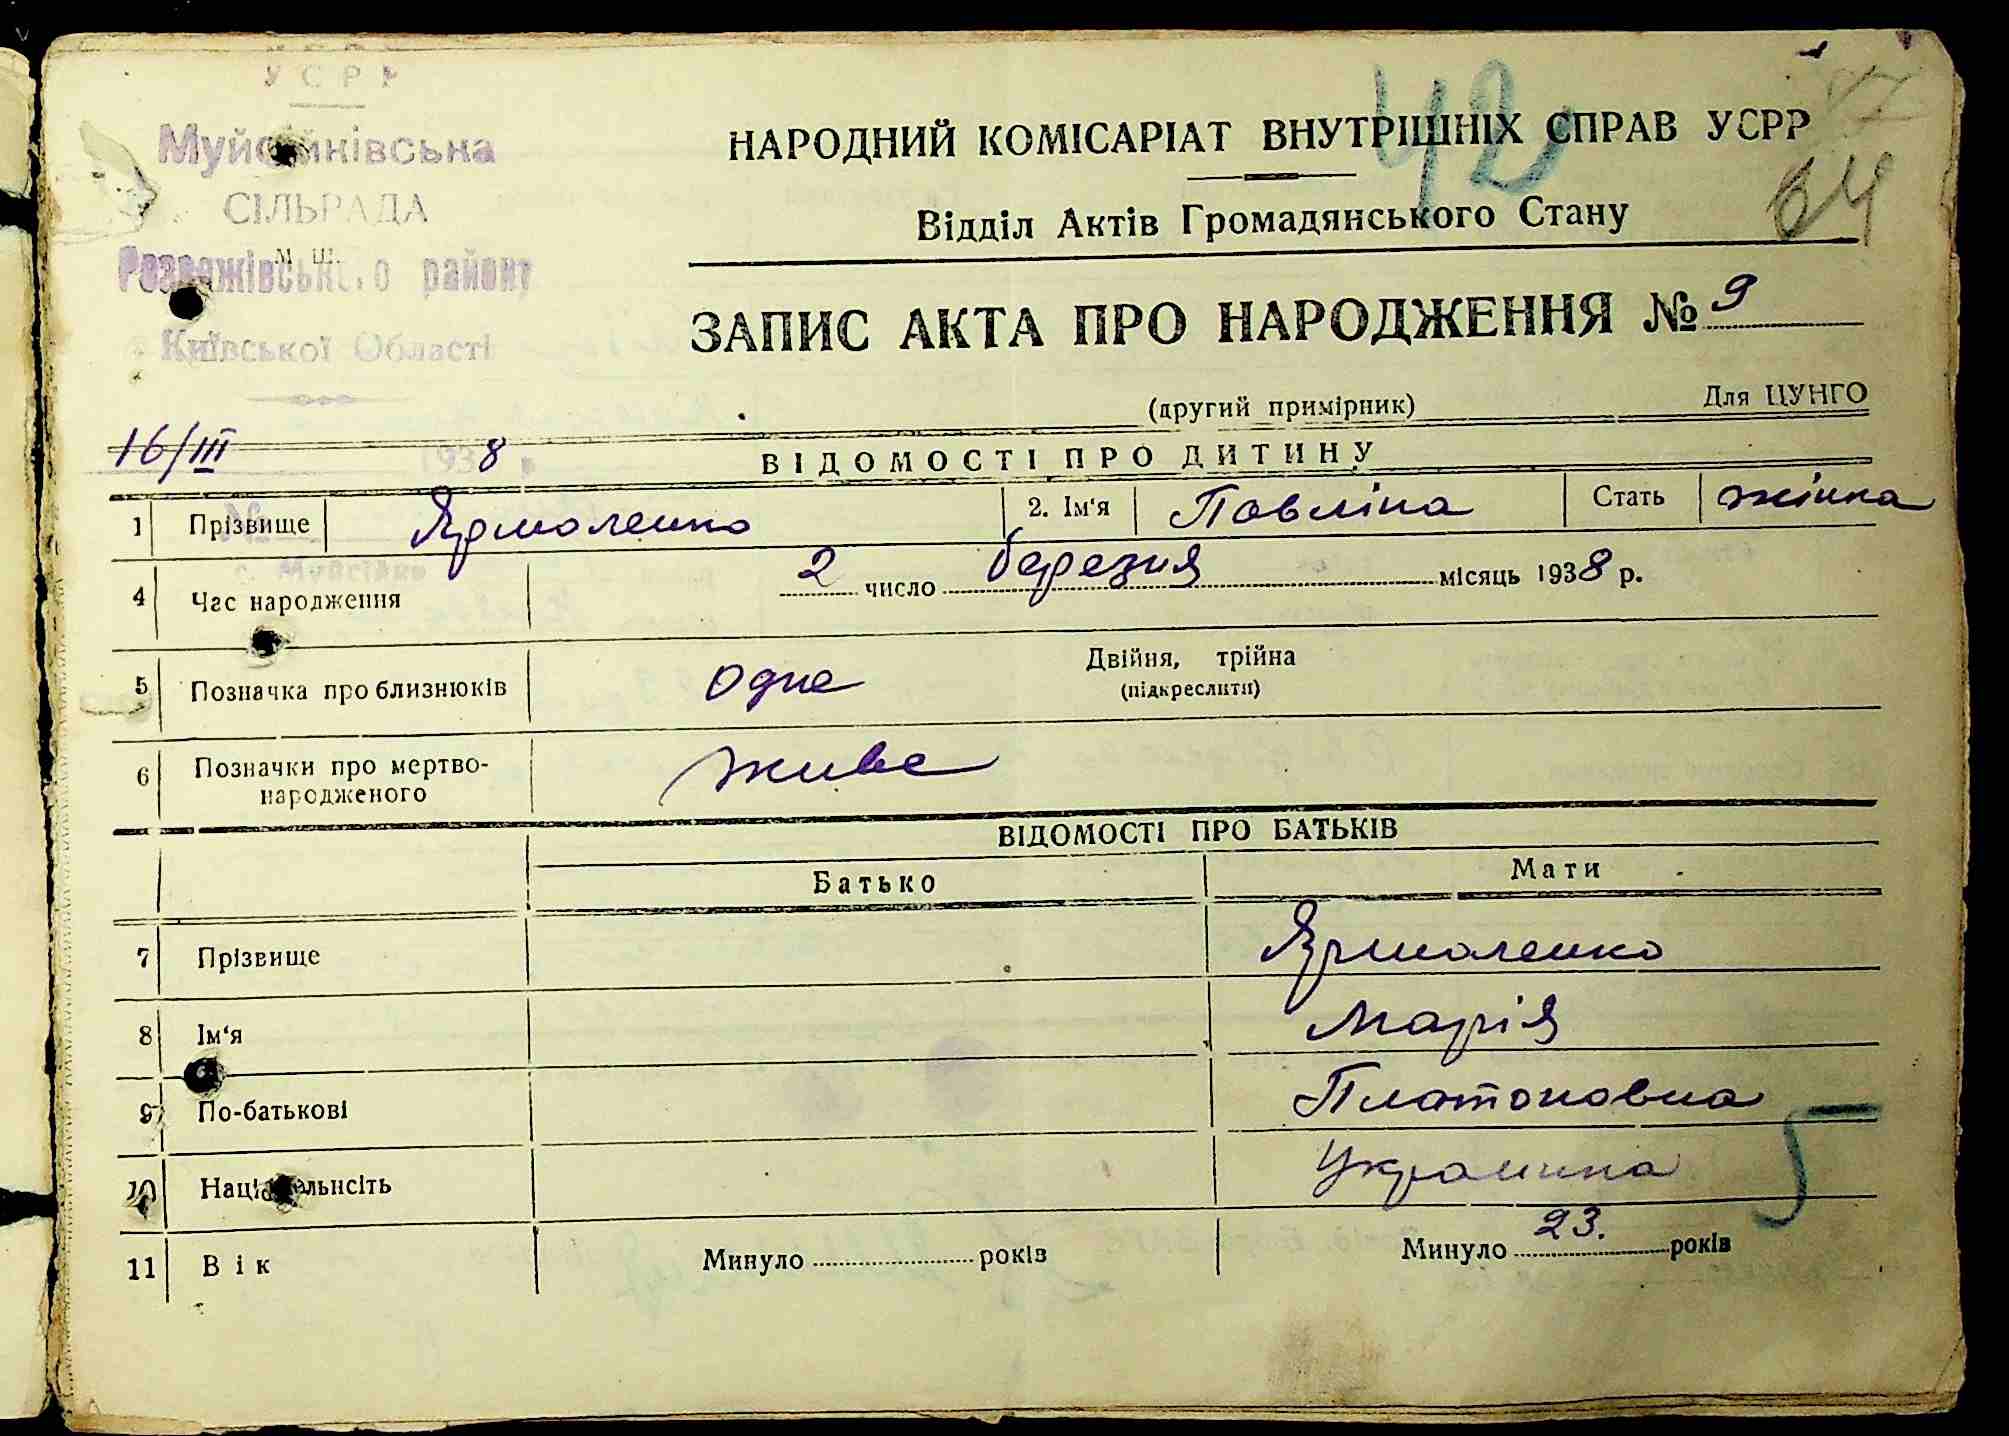 УСРР
Муйсійківська
СІЛЬРАДА
м ш.
Розважівського району
Київської Області
16/III 1938 р.
№
с. Муйсійки
42
64
НАРОДНИЙ КОМІСАРІАТ ВНУТРІШНІХ СПРАВ УСРР
Відділ Актів Громадянського Стану
ЗАПИС АКТА ПРО НАРОДЖЕННЯ № 9
(другий примірник) Для ЦУНГО
ВІДОМОСТІ ПРО ДИТИНУ
1 Прізвище Ярмоленко 2. Ім'я Павліна Стать жінка
4 Час народження 2 число березня місяць 1938 р.
5 Позначка про близнюків одне Двійня, трійна
(підкреслити)
6 Позначки про мертво-
народженого живе
ВІДОМОСТІ ПРО БАТЬКІВ
Батько Мати
7 Прізвище Ярмоленко
8 Ім'я Марія
9 По-батькові Платоновна
10 Національнсіть Украинка
5
11 Вік Минуло років Минуло 23. років